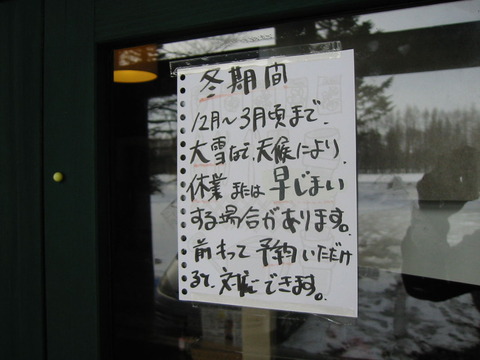 冬期間
12月～3月頃まで、
大雪など、天候により、
休業または早じまい
する場合があります。
前もって予約いただけ
ると、対応できます。